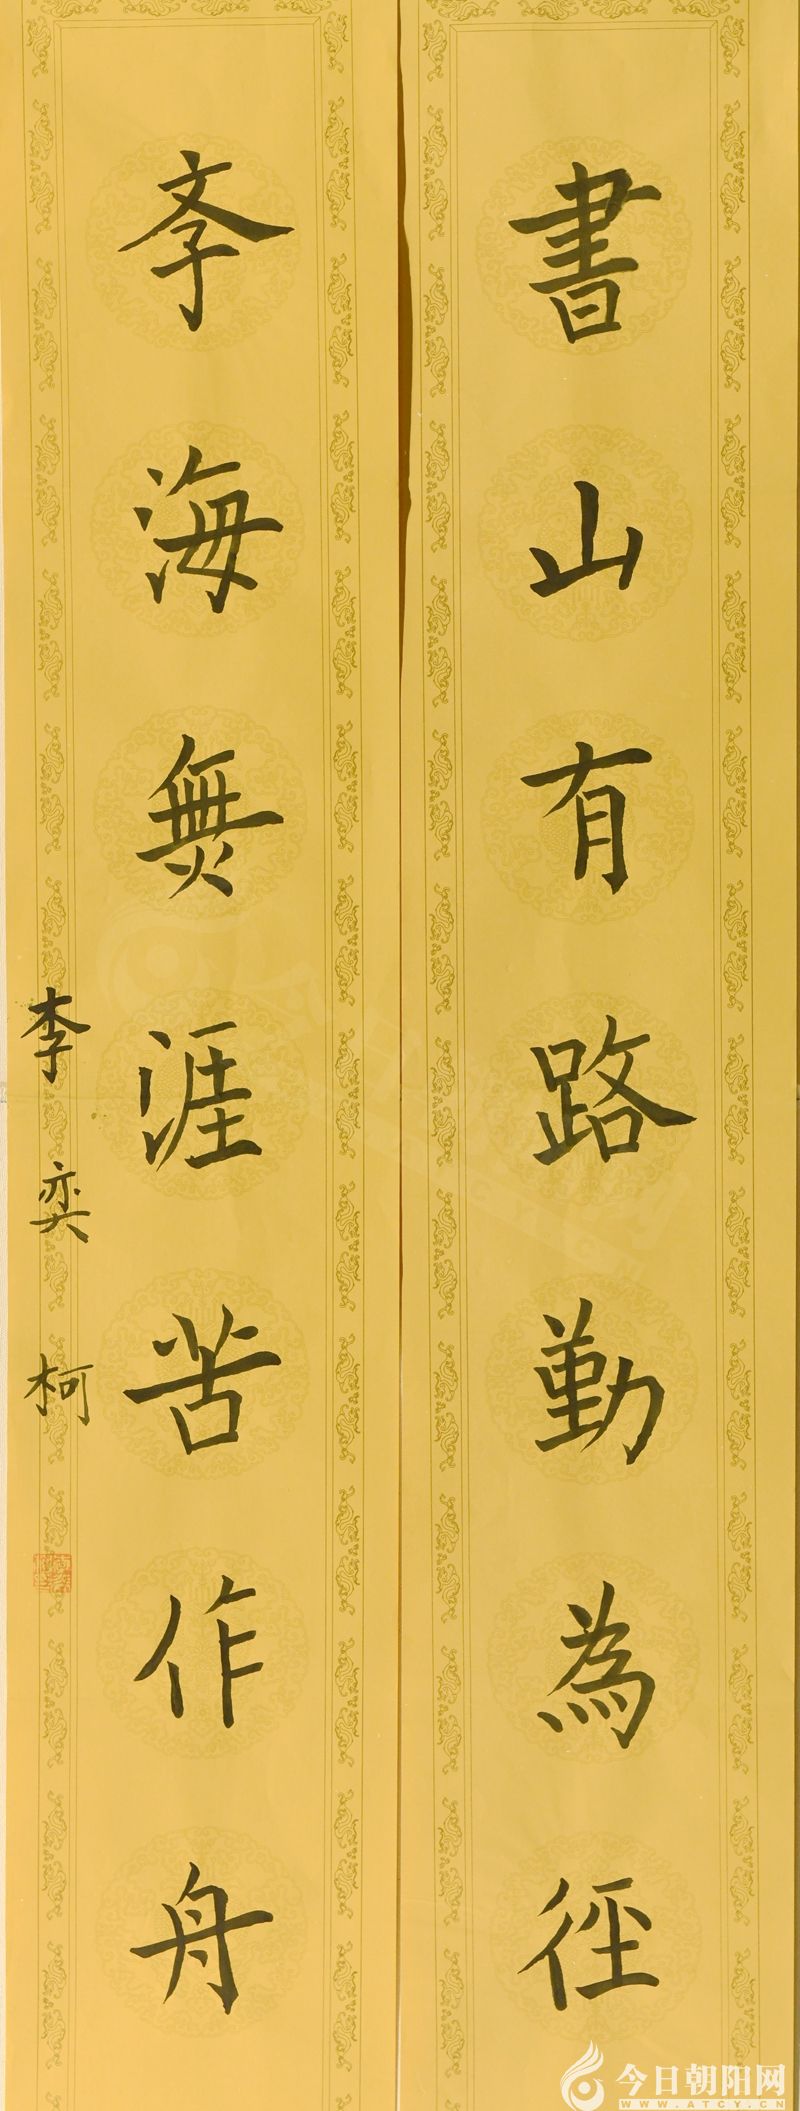 書山有路勤為徑
斈海無涯苦作舟
李奕柯
今日朝阳网
WWW.ATCY.CN